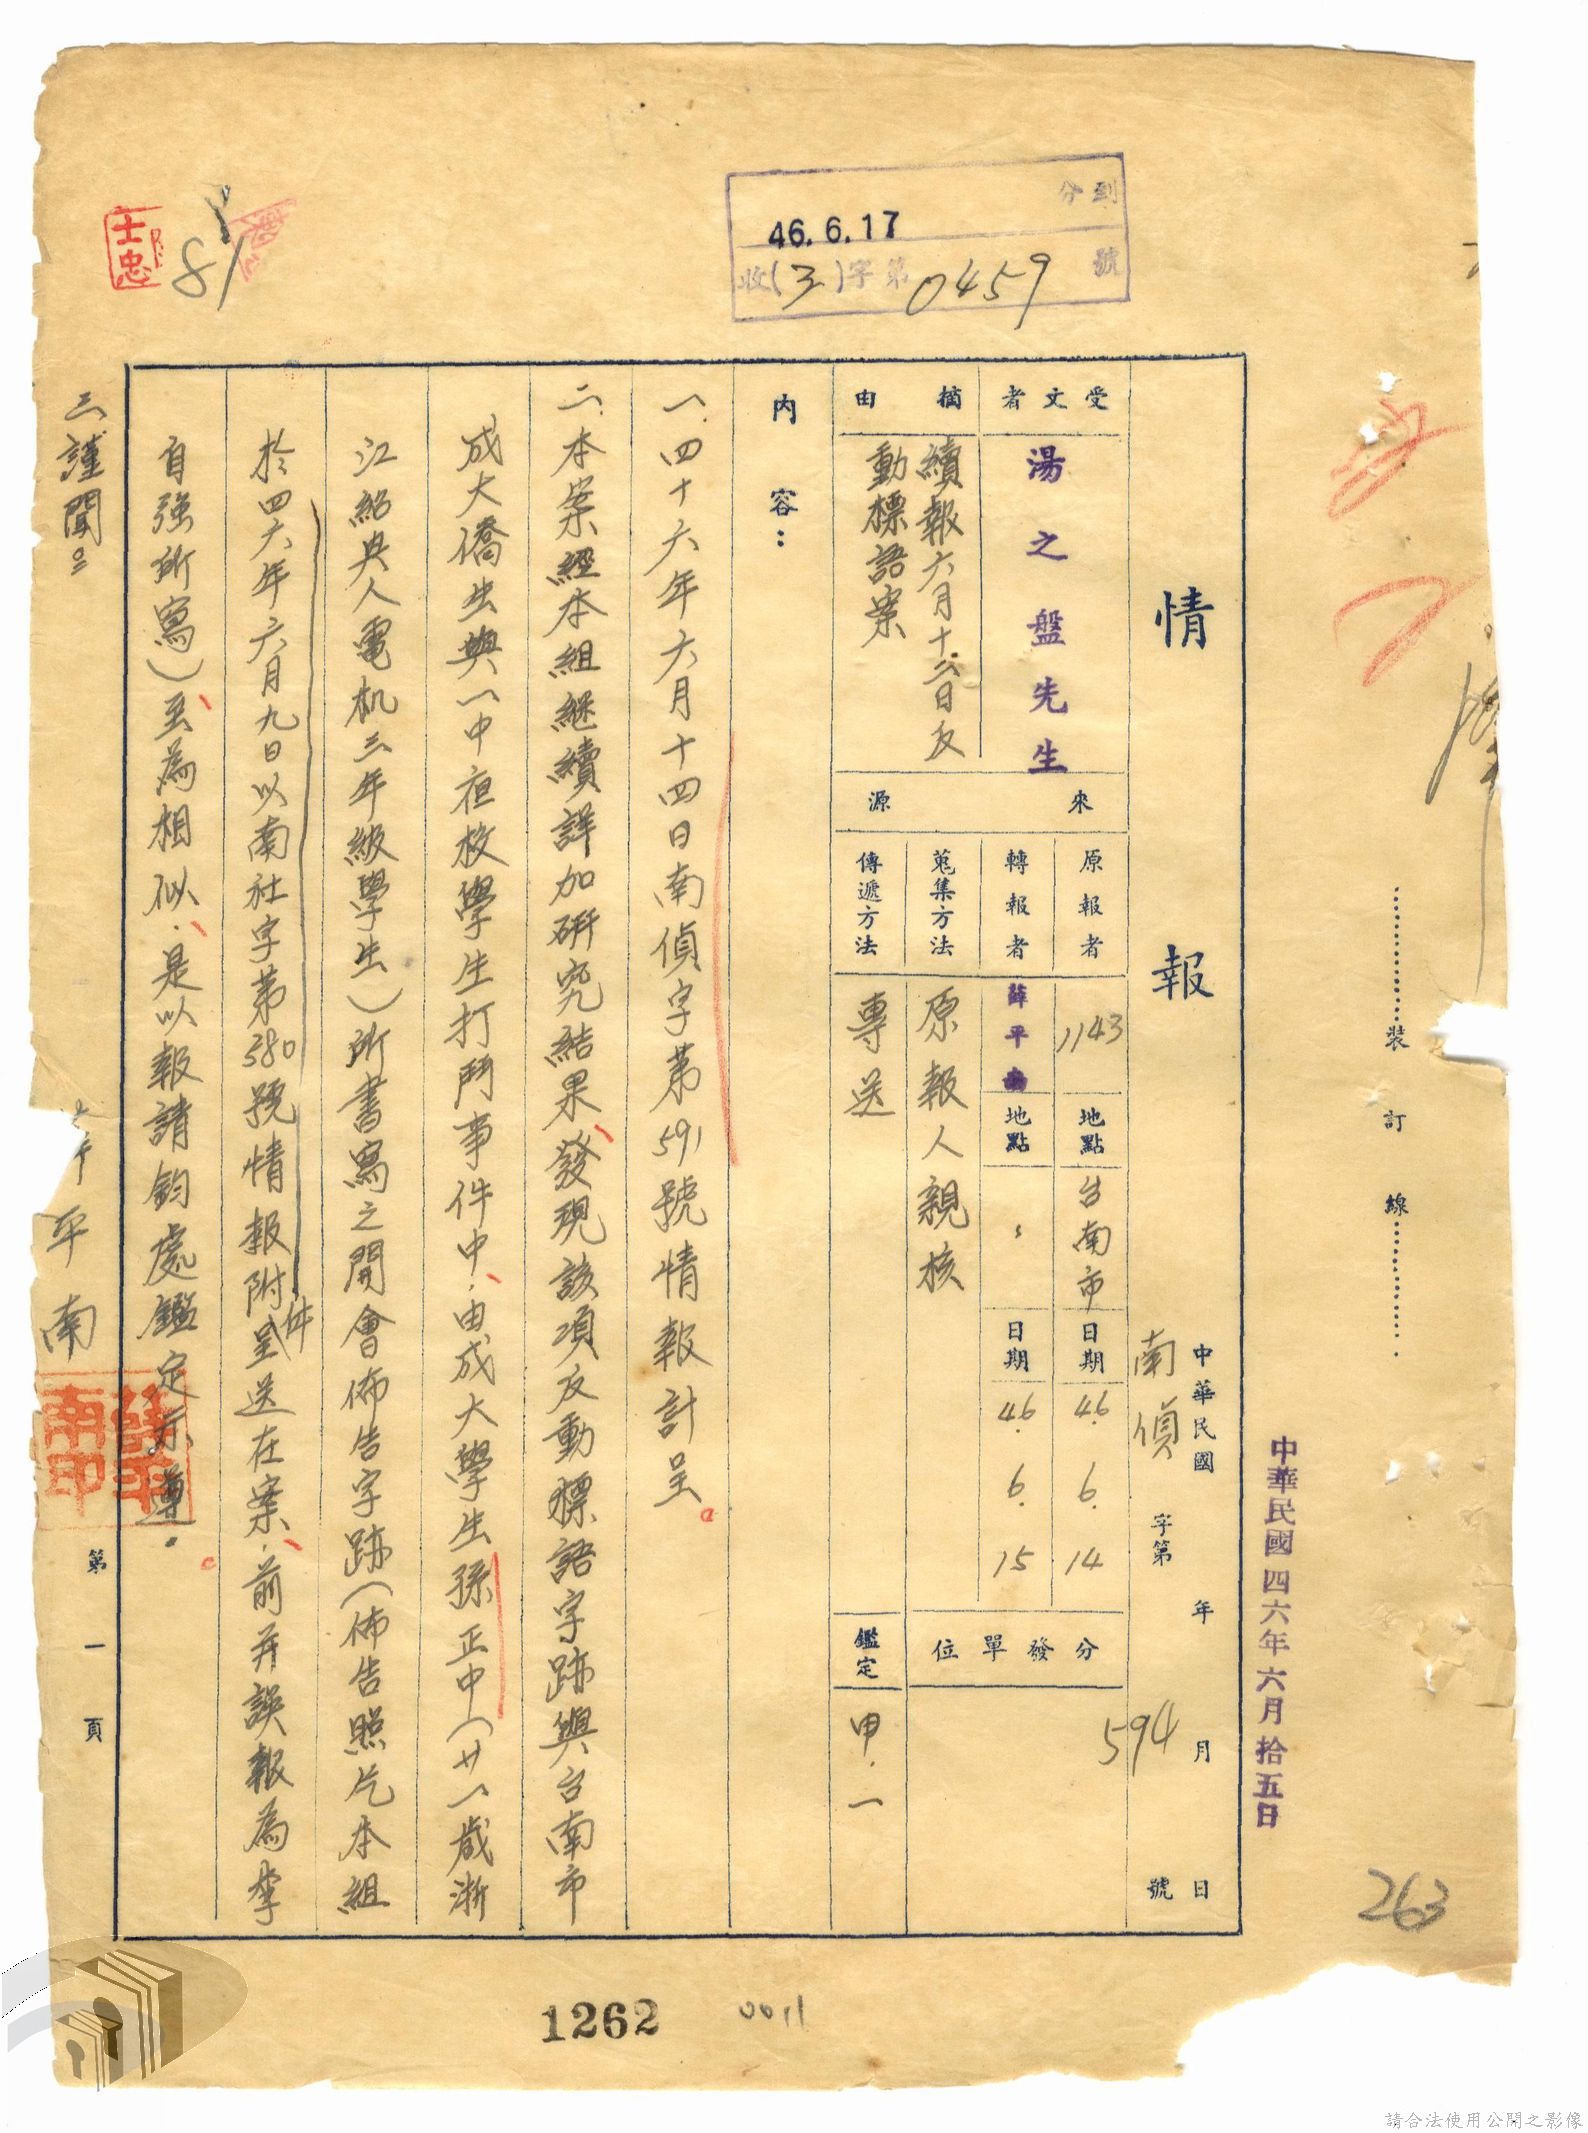 分到
46.6.17
收(3)字第0459號
士忠
81
裝訂線
中華民國四六年六月拾五日
263
情報
中華民國 年 月 日
南偵 字第 594 號
受文者
湯之盤先生
摘由
續報六月十二日反
動標語案
來源
原報者
1143
地點
台南市
日期
46.6.14
轉報者
薛平南
地點
〃
日期
46.6.15
蒐集方法
原報人親核
傳遞方法
專送
分發單位
鑑定
甲.一
內容：
一.四十六年六月十四日南偵字第591號情報計呈。
二.本案經本組継續詳加研究結果、發現該項反動標語字跡與台南市
成大僑生與一中夜校學生打鬥事件中、由成大學生孫正中(廿一歲浙
江紹興人電机三年級學生)所書寫之開會佈告字跡(佈告照片本組
於四六年六月九日以南社字第580號情報附件呈送在案、前并誤報為李
自強所寫)至為相似、是以報請鈞處鑑定示遵。
三.謹聞。
平南
薛平南印
第一頁
1262
0011
請合法使用公開之影像